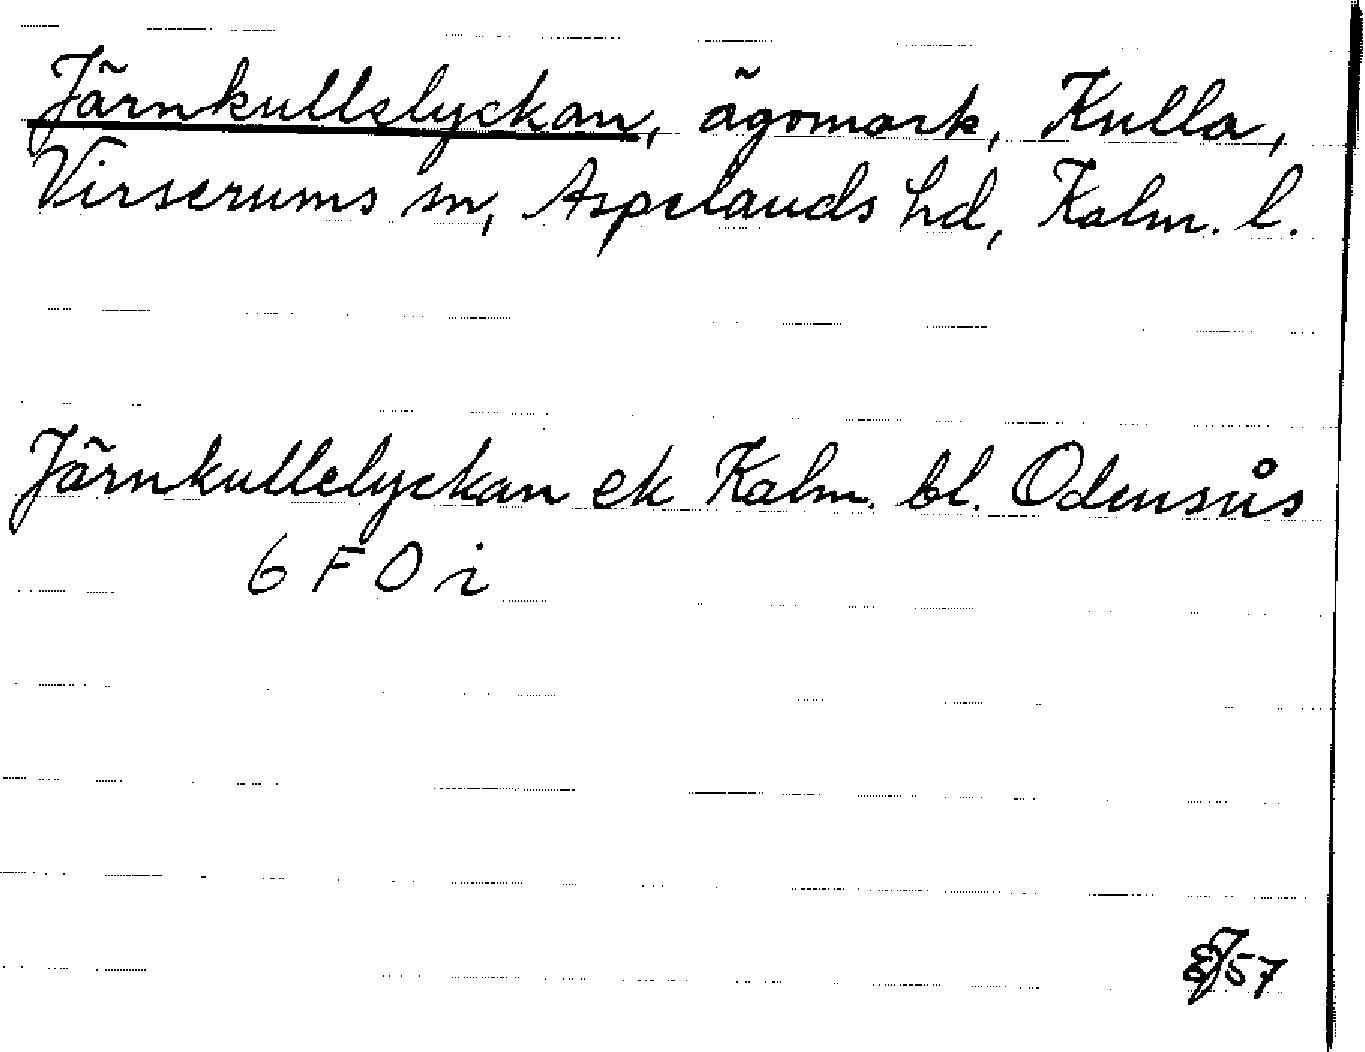 Järnkullslyckan, ägomark, Kulla,
Virserums sn, Aspelands hd, Kalm. l.
Järnkullelyckan ek Kalm. bl. Odensnås
6 F 0 i
57